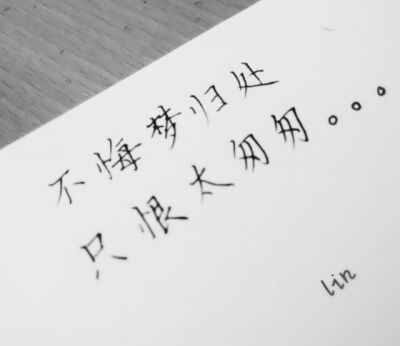 不悔梦归处
只恨太匆匆。。。
lin